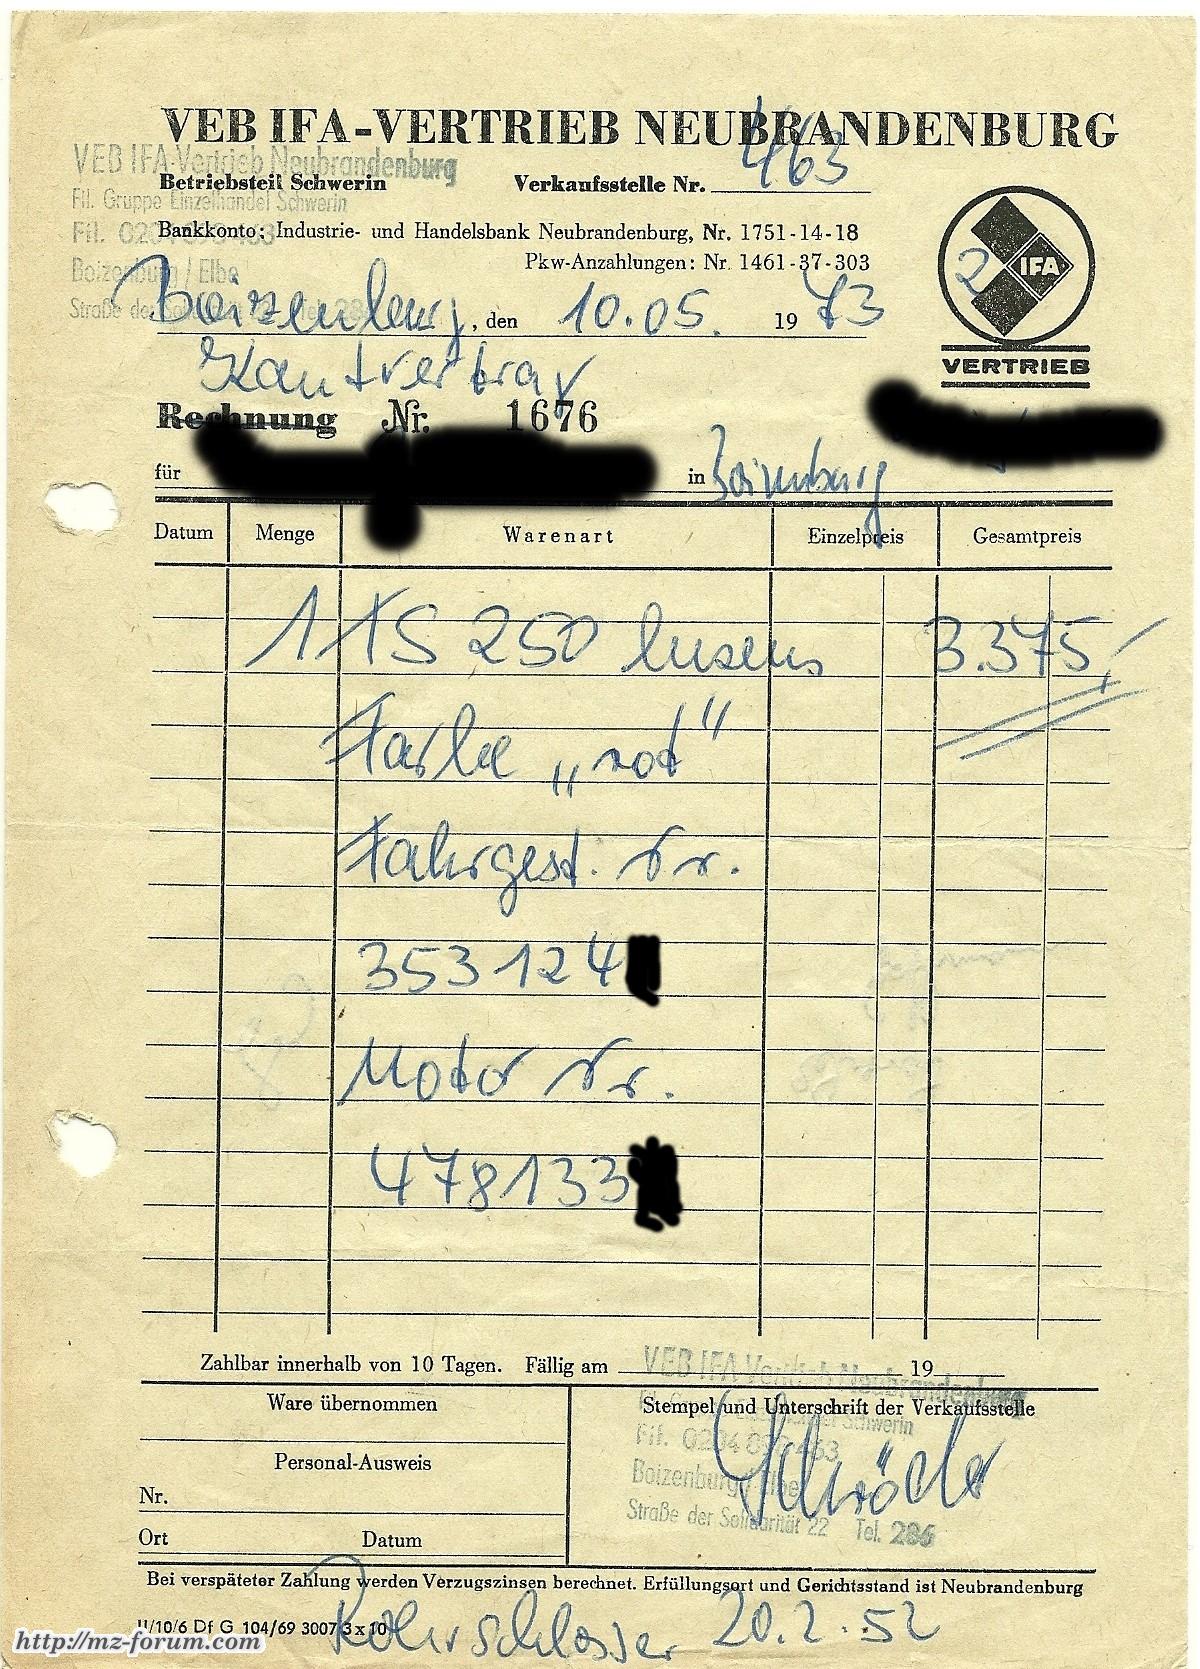 VEB IFA-VERTRIEB NEUBRANDENBURG
VEB IFA-Vertrieb Neubrandenburg
Betriebsteil Schwerin Verkaufsstelle Nr. 463
Fil. Gruppe Einzelhandel Schwerin
Fil. 0284 890 463
Bankkonto: Industrie- und Handelsbank Neubrandenburg, Nr. 1751-14-18
Pkw-Anzahlungen: Nr. 1461-37-303
Boizenburg / Elbe
Straße der Solidarität 22 Tel. 286
Boizenburg, den 10.05. 1973
2
IFA
VERTRIEB
Kaufvertrag
Rechnung Nr. 1676
für in Boizenburg
Datum Menge Warenart Einzelpreis Gesamtpreis
1 TS 250 luxus 3.375,
Farbe „rot"
Fahrgest. Nr.
353124
Motor Nr.
478133
Zahlbar innerhalb von 10 Tagen. Fällig am 19
VEB IFA Vertrieb Neubrandenburg
Ware übernommen
Stempel und Unterschrift der Verkaufsstelle
Fil. Gruppe Einzelhandel Schwerin
Fil. 0284 890 463
Boizenburg / Elbe
Straße der Solidarität 22 Tel. 286
Schröder
Personal-Ausweis
Nr.
Ort Datum
Bei verspäteter Zahlung werden Verzugszinsen berechnet. Erfüllungsort und Gerichtsstand ist Neubrandenburg
II/10/6 Df G 104/69 3007 3 x 10
Rohrschlosser 20.2.52
http://mz-forum.com